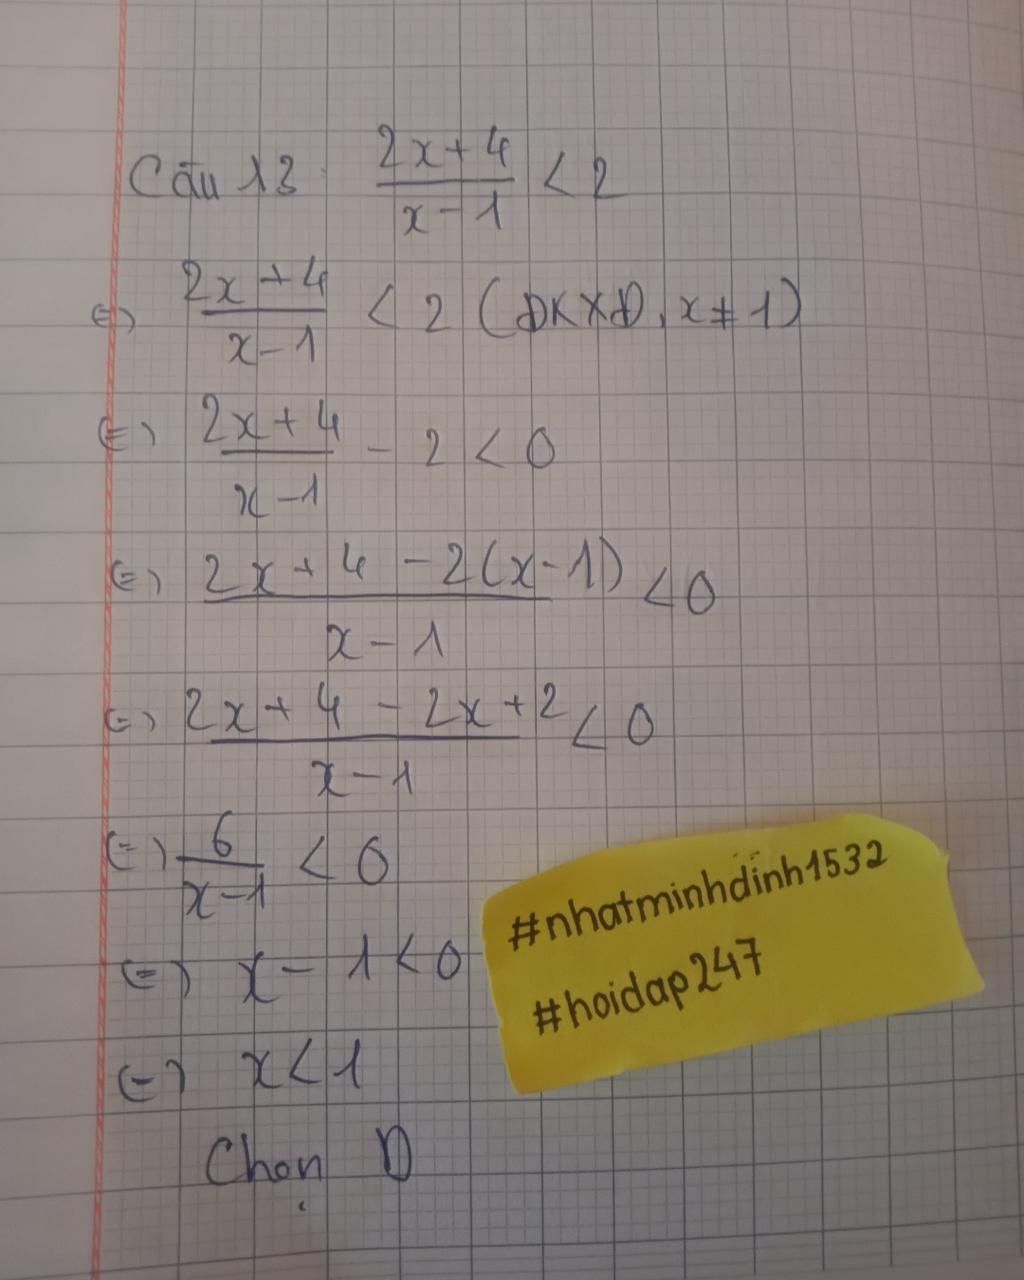 Câu 13: (2x+4)/(x-1) < 2
<=> (2x+4)/(x-1) < 2 (ĐKXĐ: x≠1)
<=> (2x+4)/(x-1) - 2 < 0
<=> (2x+4-2(x-1))/(x-1) < 0
<=> (2x+4-2x+2)/(x-1) < 0
<=> 6/(x-1) < 0
<=> x-1<0
<=> x<1
Chọn D
#nhatminhdinh1532
#hoidap247